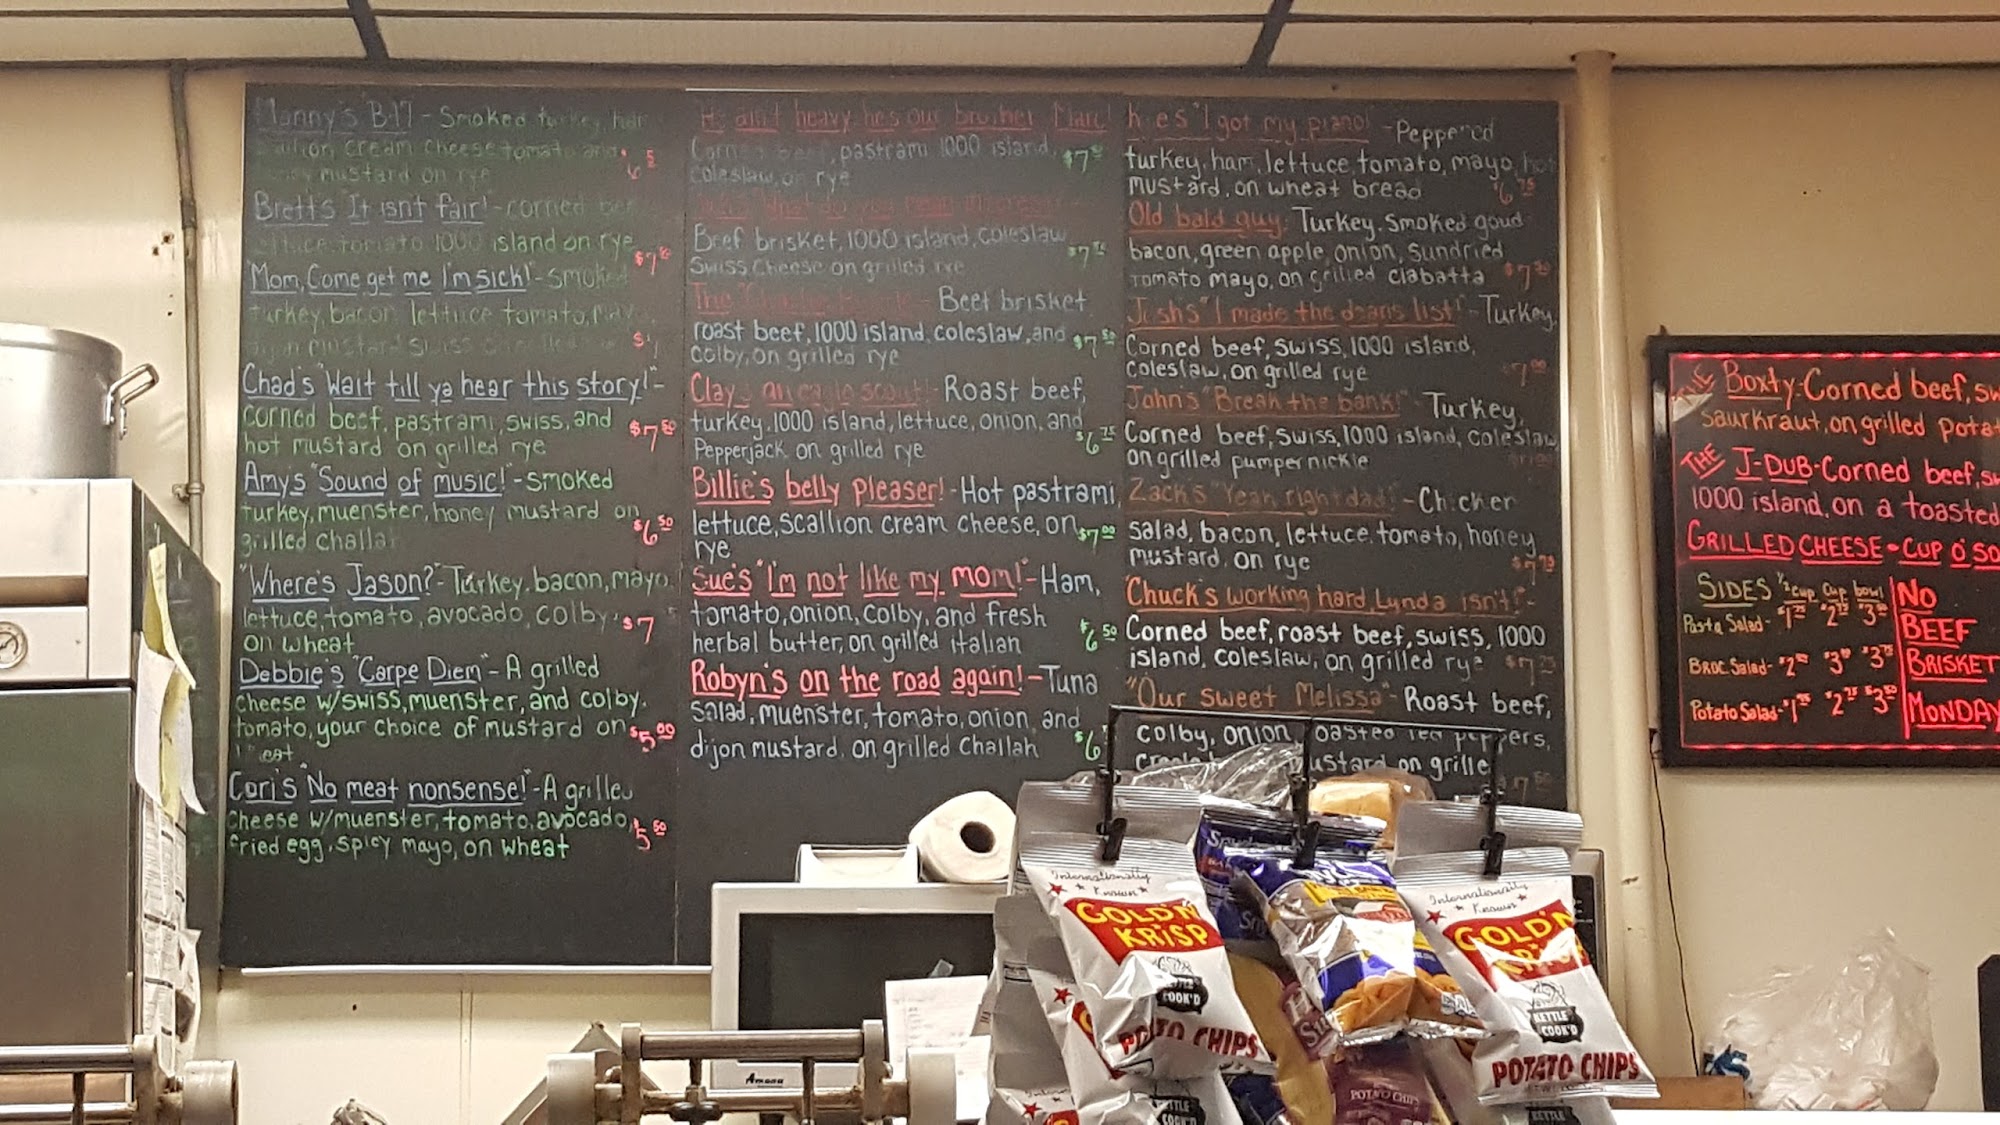 Manny's "B-17 - Smoked turkey, ham
cream cheese tomato and
mustard on rye
Brett's "It isn't fair!" - corned
lettuce, tomato 1000 island on rye
"Mom, Come get me I'm sick!" - Smoked
turkey, bacon lettuce tomato,
Chad's "Wait till ya hear this story!" -
corned beef, pastrami, swiss, and
hot mustard on grilled rye $7 50
Amy's "Sound of music!" - smoked
turkey, muenster, honey mustard on
grilled challah $6 50
"Where's Jason?" - Turkey, bacon, mayo,
lettuce, tomato, avocado, colby, $7
on wheat
Debbie's "Carpe Diem" - A grilled
cheese w/swiss, muenster, and colby,
tomato, your choice of mustard on $5 00
Cori's "No meat nonsense!" - A grilled
cheese w/muenster, tomato, avocado, $5 50
fried egg, spicy mayo, on wheat
He ain't heavy he's our brother Marc!
Corned beef, pastrami 1000 island,
coleslaw, on rye
Beef brisket, 1000 island, coleslaw
Swiss cheese on grilled rye
The - Beef brisket
roast beef, 1000 island, coleslaw, and
colby, on grilled rye
Clay's an eagle scout! - Roast beef,
turkey, 1000 island, lettuce, onion, and
Pepperjack on grilled rye $6 75
Billie's belly pleaser! - Hot pastrami,
lettuce, scallion cream cheese, on $7 00
rye
Sue's "I'm not like my mom!" - Ham,
tomato, onion, colby, and fresh
herbal butter, on grilled italian $6 50
Robyn's on the road again! - Tuna
salad, muenster, tomato, onion, and
dijon mustard, on grilled Challah $6
"I got my piano!" - Peppered
turkey, ham, lettuce, tomato, mayo, hot
mustard, on wheat bread $6 75
Old bald guy: Turkey, smoked goud
bacon, green apple, onion, sundried
tomato mayo, on grilled ciabatta
Josh's "I made the deans list!" - Turkey,
Corned beef, swiss, 1000 island,
coleslaw, on grilled rye $7 00
John's "Break the bank!" - Turkey,
Corned beef, swiss, 1000 island, coleslaw,
on grilled pumpernickle
Zack's "Yeah, right dad!" - Chicken
salad, bacon, lettuce, tomato, honey
mustard, on rye
"Chuck's working hard, Lynda isn't!" -
Corned beef, roast beef, swiss, 1000
island, coleslaw, on grilled rye $7 25
"Our sweet Melissa" - Roast beef,
colby, onion, roasted red peppers,
mustard on grille
THE Boxty - Corned beef, sw
saurkraut, on grilled potat
THE J-DUB - Corned beef, sw
1000 island, on a toasted
GRILLED CHEESE - CUP O' SO
SIDES ½ cup cup bowl
Pasta Salad - $1 75 $2
BROC. Salad - $2 $3
Potato Salad - $1 75 $2 75 $3 50
NO
BEEF
BRISKET
MONDAY
Internationally
Known
GOLD'N
KRISP
KETTLE
COOK'D
POTATO CHIPS
Internationally
Known
GOLD'N
KRISP
KETTLE
COOK'D
POTATO CHIPS
POTATO CHIPS
KETTLE
COOK'D
KETTLE
Amana